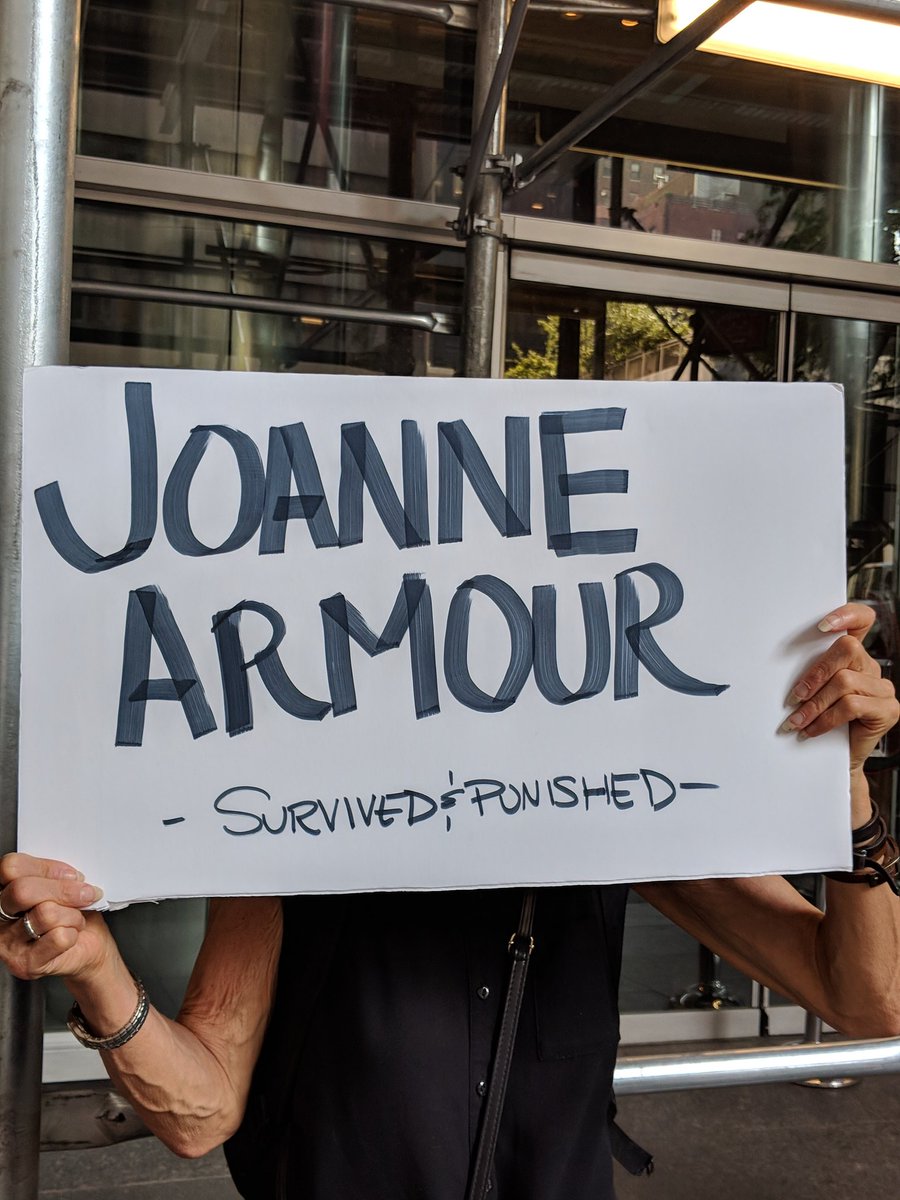 JOANNE
ARMOUR
- SURVIVED & PUNISHED -